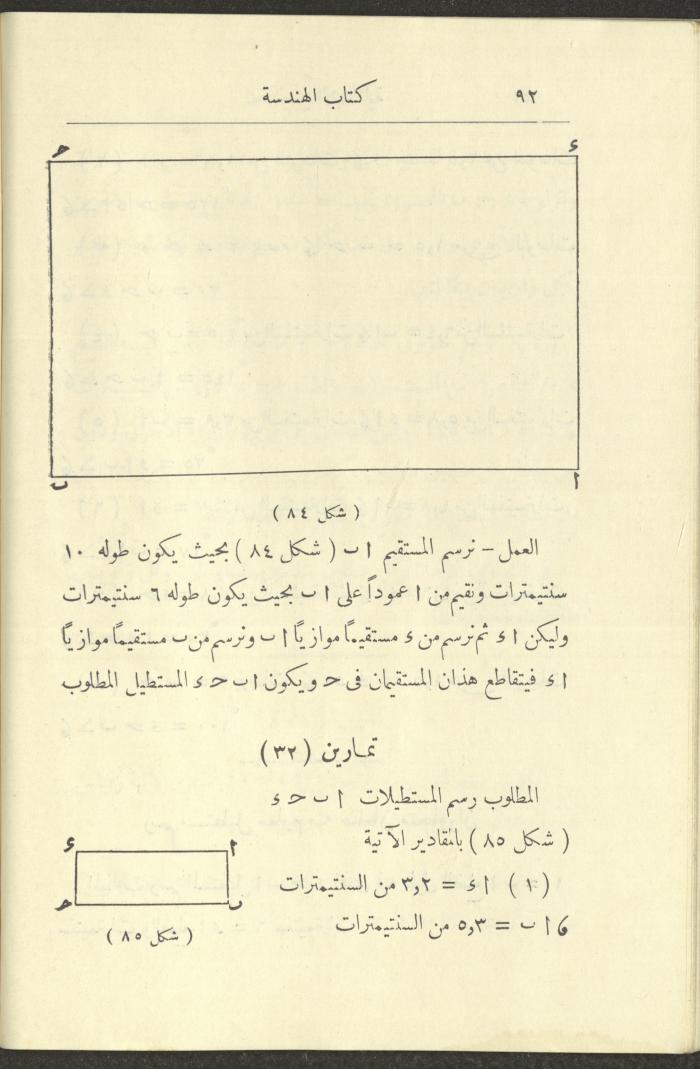 ٩٢ كتاب الهندسة
ء ح
ا ب
( شكل ٨٤ )
العمل – نرسم المستقيم ا ب ( شكل ٨٤ ) بحيث يكون طوله ١٠
سنتيمترات ونقيم من ا عموداً على ا ب بحيث يكون طوله ٦ سنتيمترات
وليكن ا ء ثم نرسم من ء مستقيماً موازياً ا ب ونرسم من ب مستقيماً موازياً
ا ء فيتقاطع هذان المستقيمان فى ح ويكون ا ب ح ء المستطيل المطلوب
تمارين ( ٣٢ )
المطلوب رسم المستطيلات ا ب ح ء
( شكل ٨٥ ) بالمقادير الآتية
( ١ ) ا ء = ٣٫٢ من السنتيمترات
6 ا ب = ٥٫٣ من السنتيمترات
ا ء
ب ح
( شكل ٨٥ )